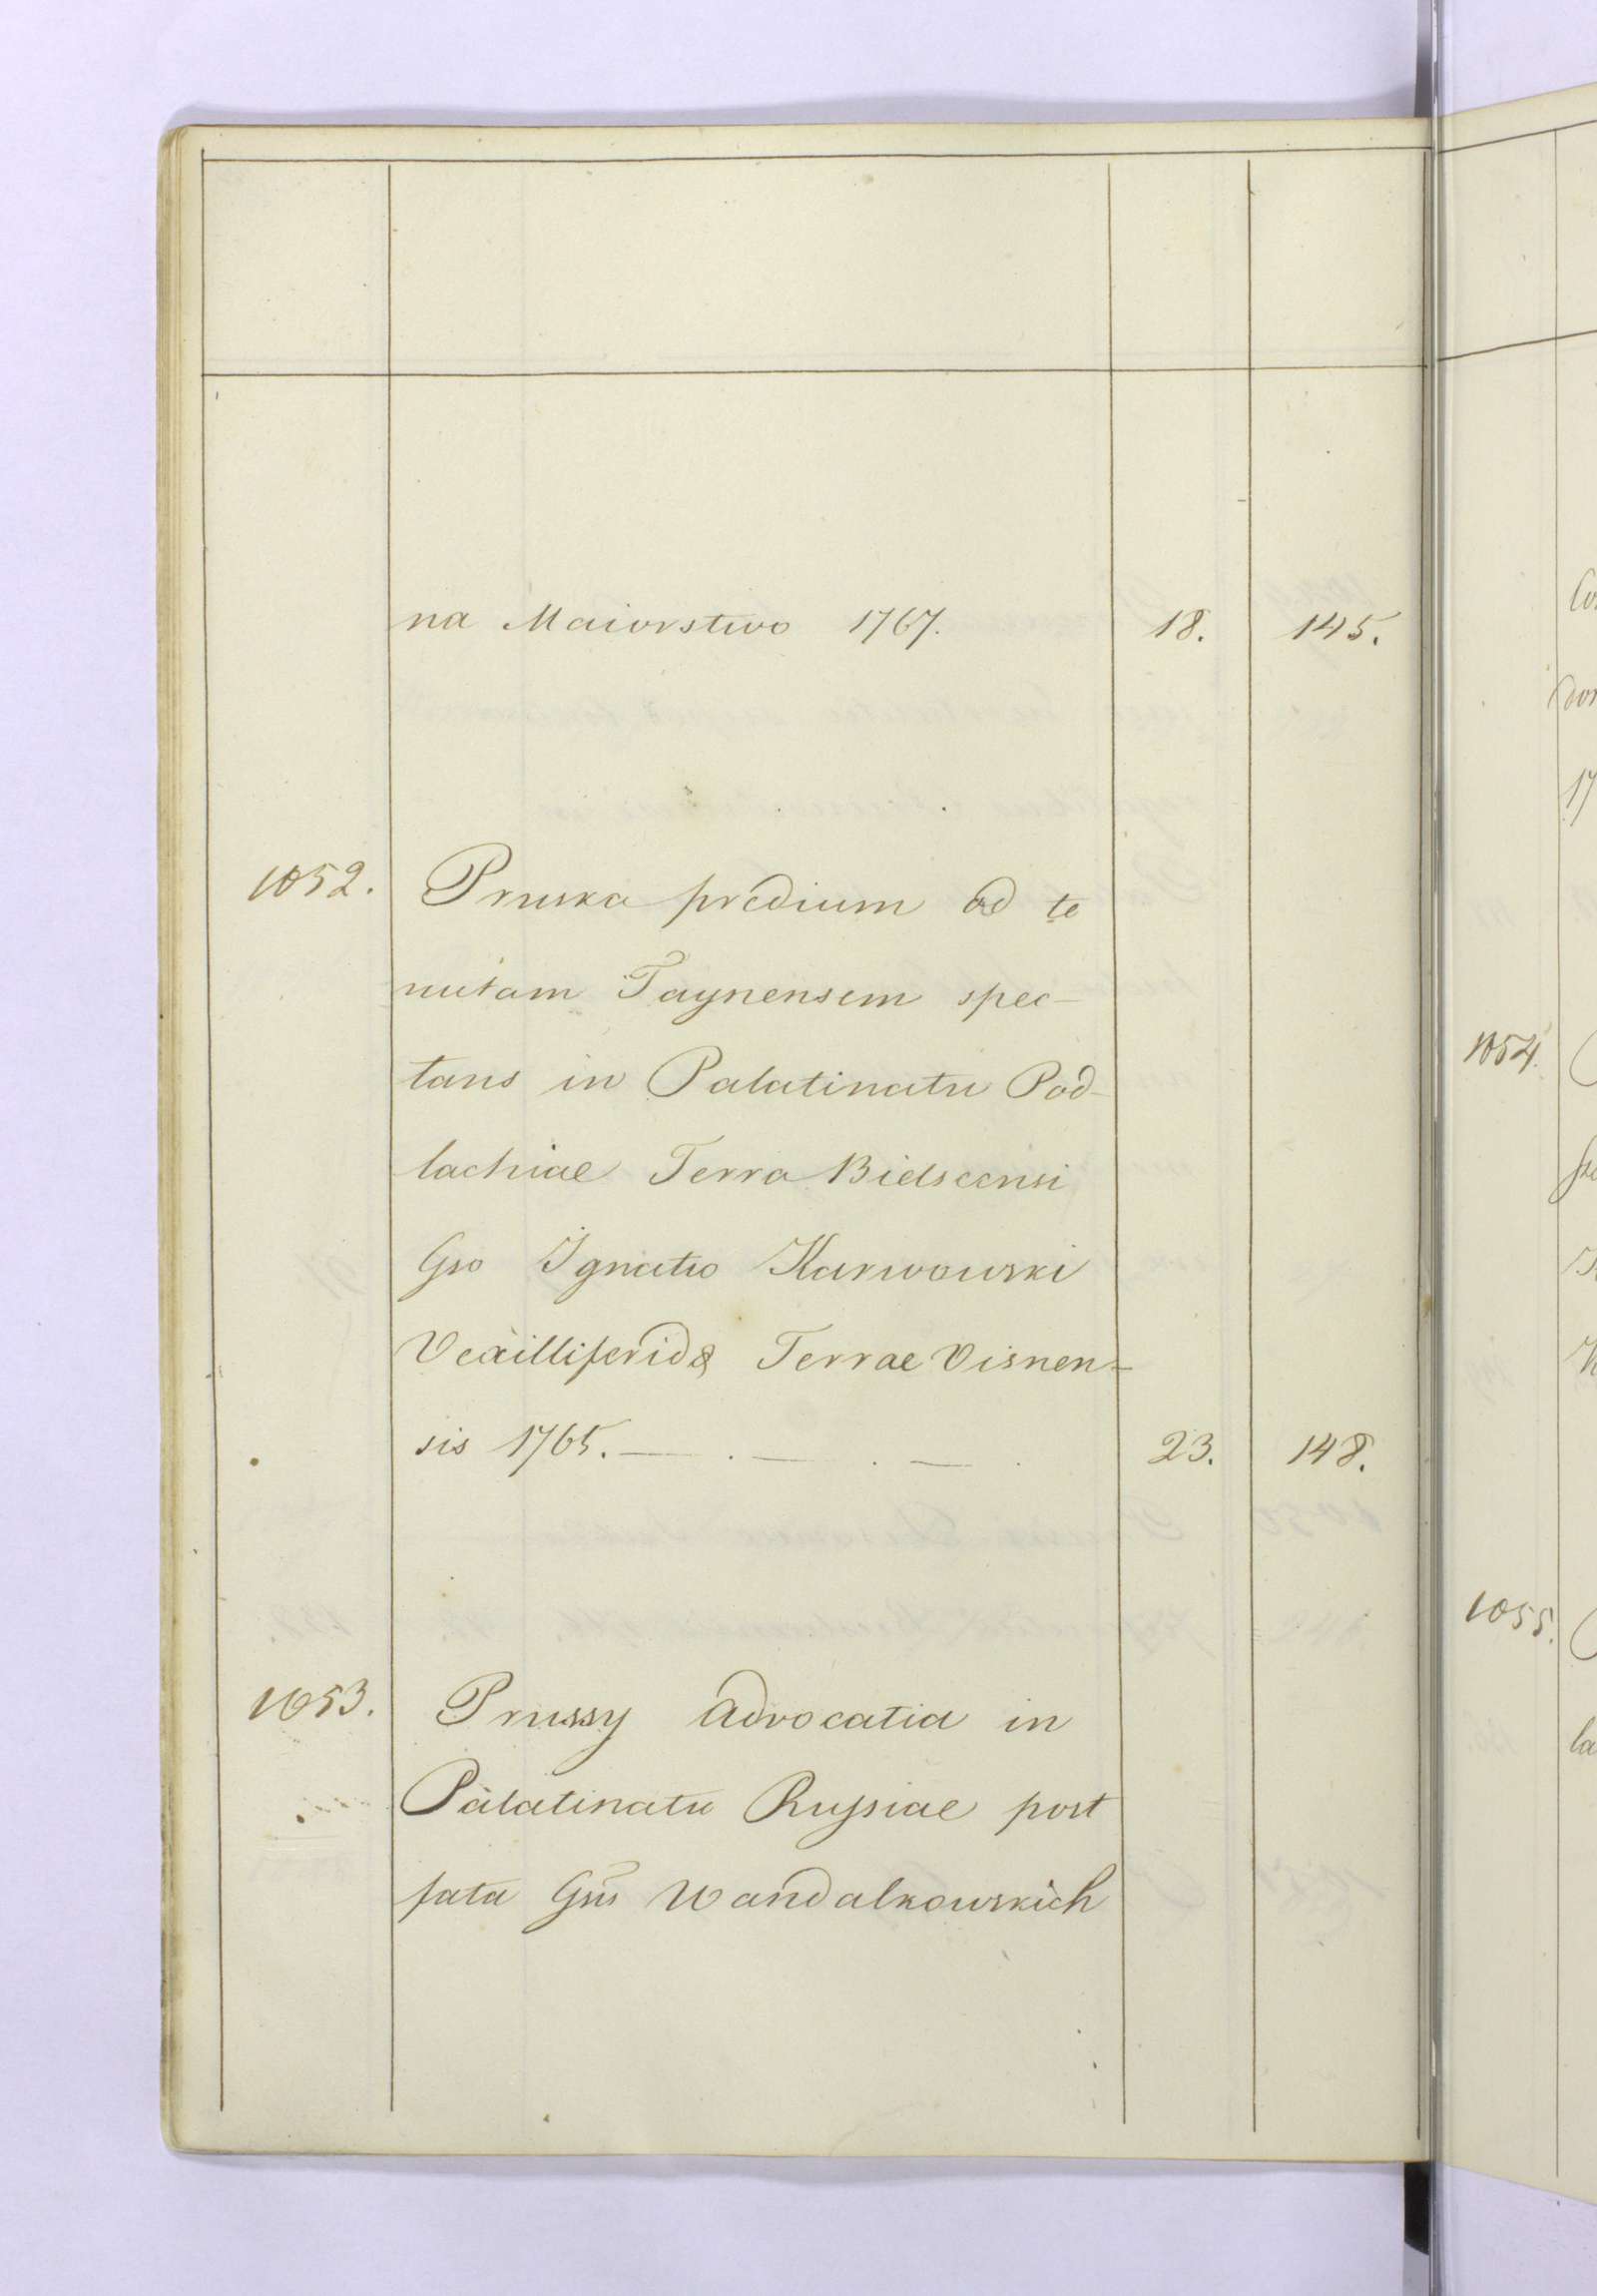 na Maiorstwo 1767. 18. 145.
1052. Pruska predium ad te
nutam Taynensem spec-
tans in Palatinatu Pod-
lachiae Terra Bielscensi
Gso Ignatio Karwowski
Terrae Visnen-
sis 1765. — . — . — . 23. 148.
1053. Prussy advocatia in
Palatinatu Russiae post
fata Gsis Wandalkowskich
1054.
1055.